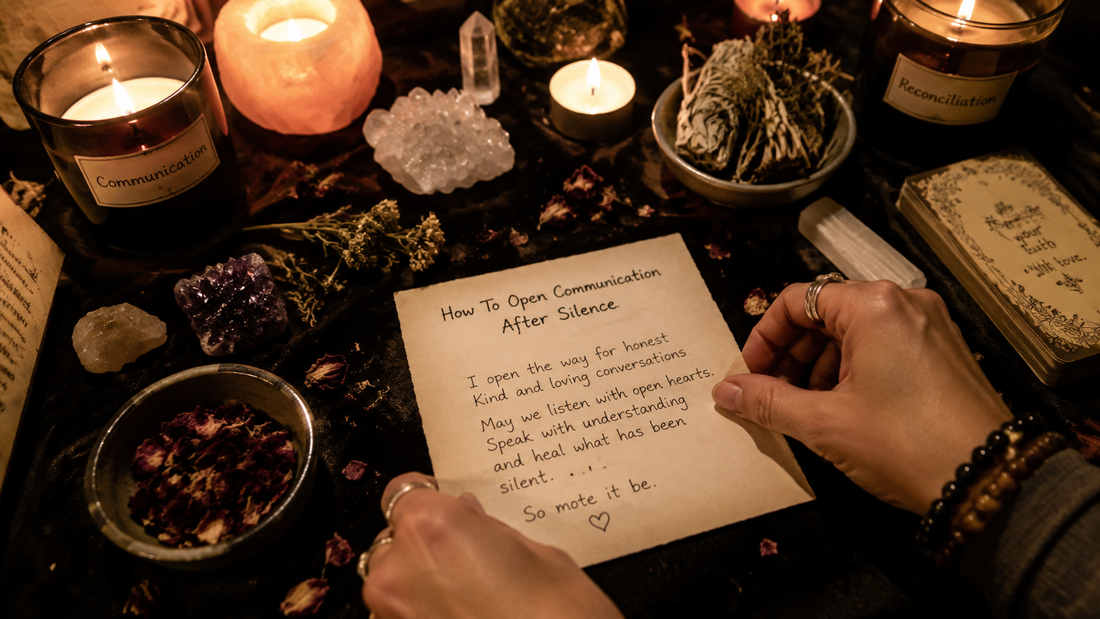 Communication
Reconciliation
your
with love.
How To Open Communication
After Silence
I open the way for honest
Kind and loving conversations
May we listen with open hearts.
Speak with understanding
and heal what has been
silent. . . .
So mote it be.